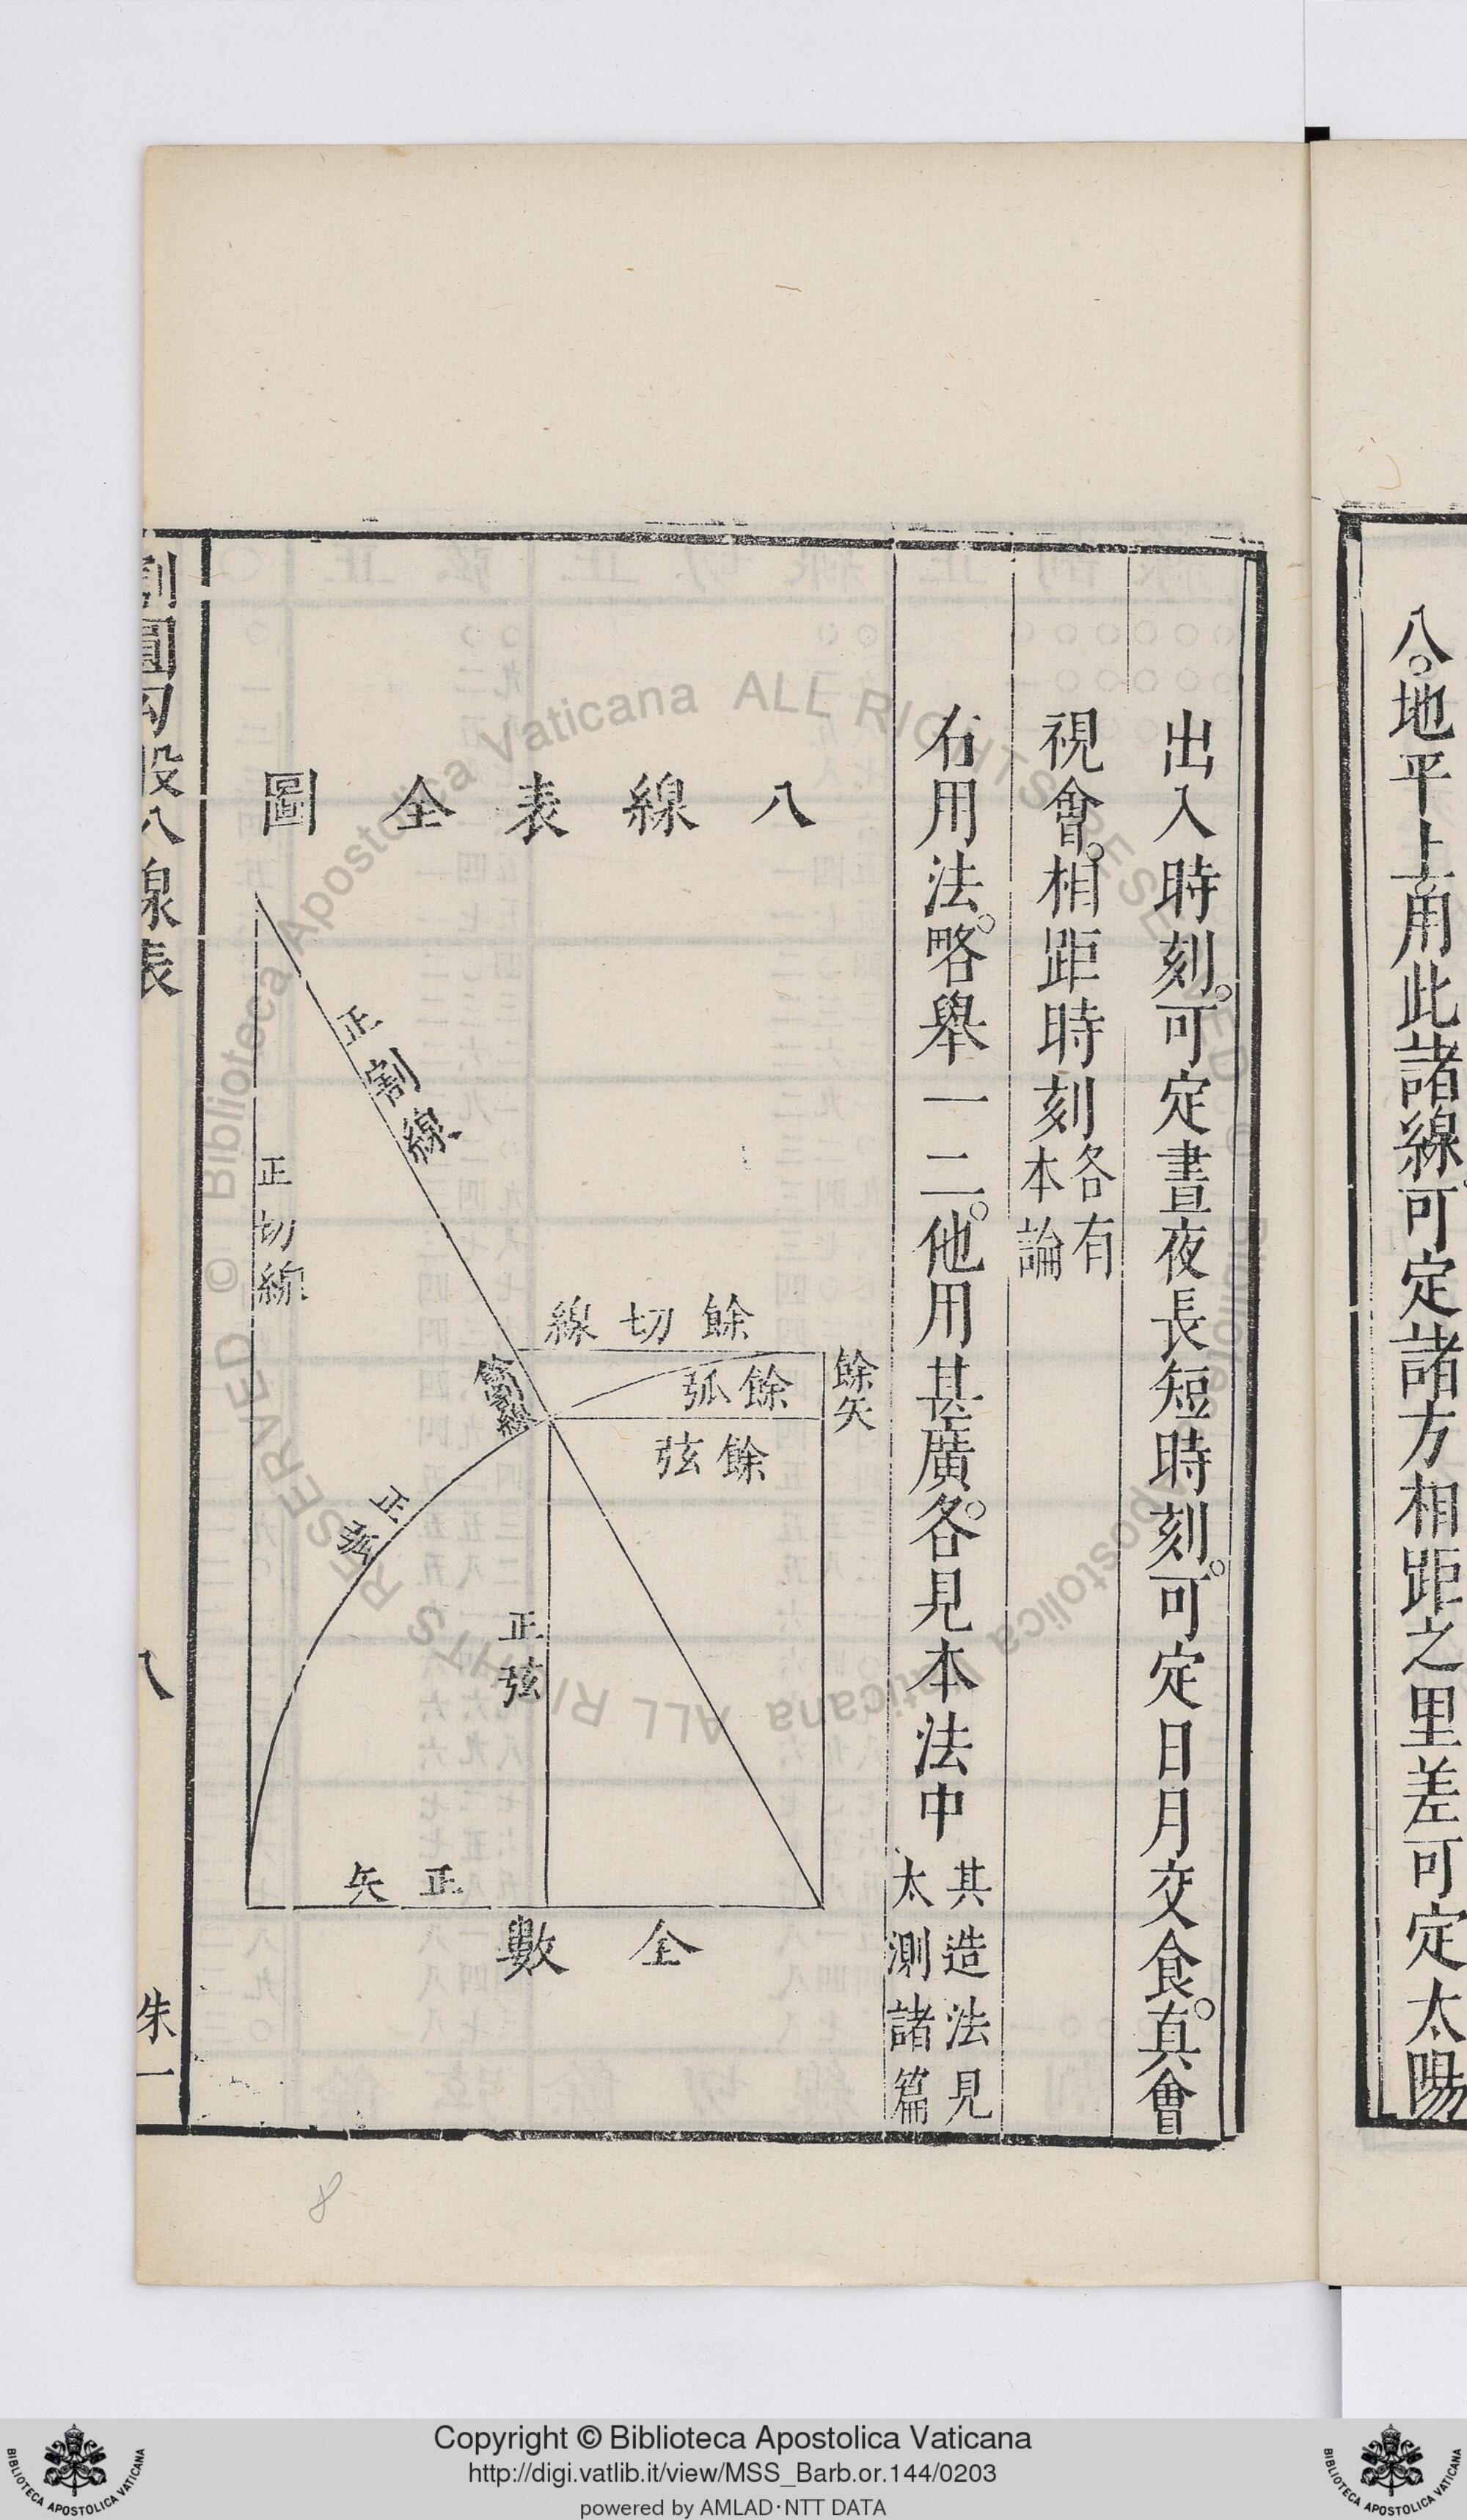 八。地平上用此諸線。可定諸方相距之里差可定太陽
出入時刻。可定晝夜長短時刻。可定日月交食。真會
視會。相距時刻各有本論
右用法。略舉一二。他用甚廣。各見本法中其造法見太測諸篇
八線表全圖
正割線
正切線
餘切線
餘割線
餘弧
餘矢
餘弦
正弧
正弦
正矢
全數
割圓勾股八線表
八
朱一
8
© Biblioteca Apostolica Vaticana ALL RIGHTS RESERVED © Biblioteca Apostolica Vaticana ALL RIGHTS RESERVED
Copyright © Biblioteca Apostolica Vaticana
http://digi.vatlib.it/view/MSS_Barb.or.144/0203
powered by AMLAD·NTT DATA
BIBLIOTECA APOSTOLICA VATICANA
BIBLIOTECA APOSTOLICA VATICANA